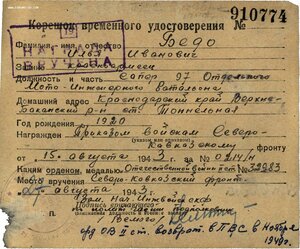 Корешок временного удостоверения № 910774
Фамилия, имя, отчество Бедо
Илья Иванович
НАГРАДА
ВРУЧЕНА
Звание красноармеец
Должность и часть Сапер 97 Отдельного
Мото-Инженерного Батальона
Домашний адрес Краснодарский край Верхне-
Баканский р-н ст. Тоннельная
Год рождения 1920
Награжден Приказом войскам Северо-
Кавказскому фронту
от "15" августа 1943 г. за №
Каким орденом, медалью Отечественной войны II ст № 39983
Место вручения Северо-Кавказский фронт
августа 1943 г.
Подпись
орд ОВ II ст. возврат. в ПВС в ноябре
1948 г.